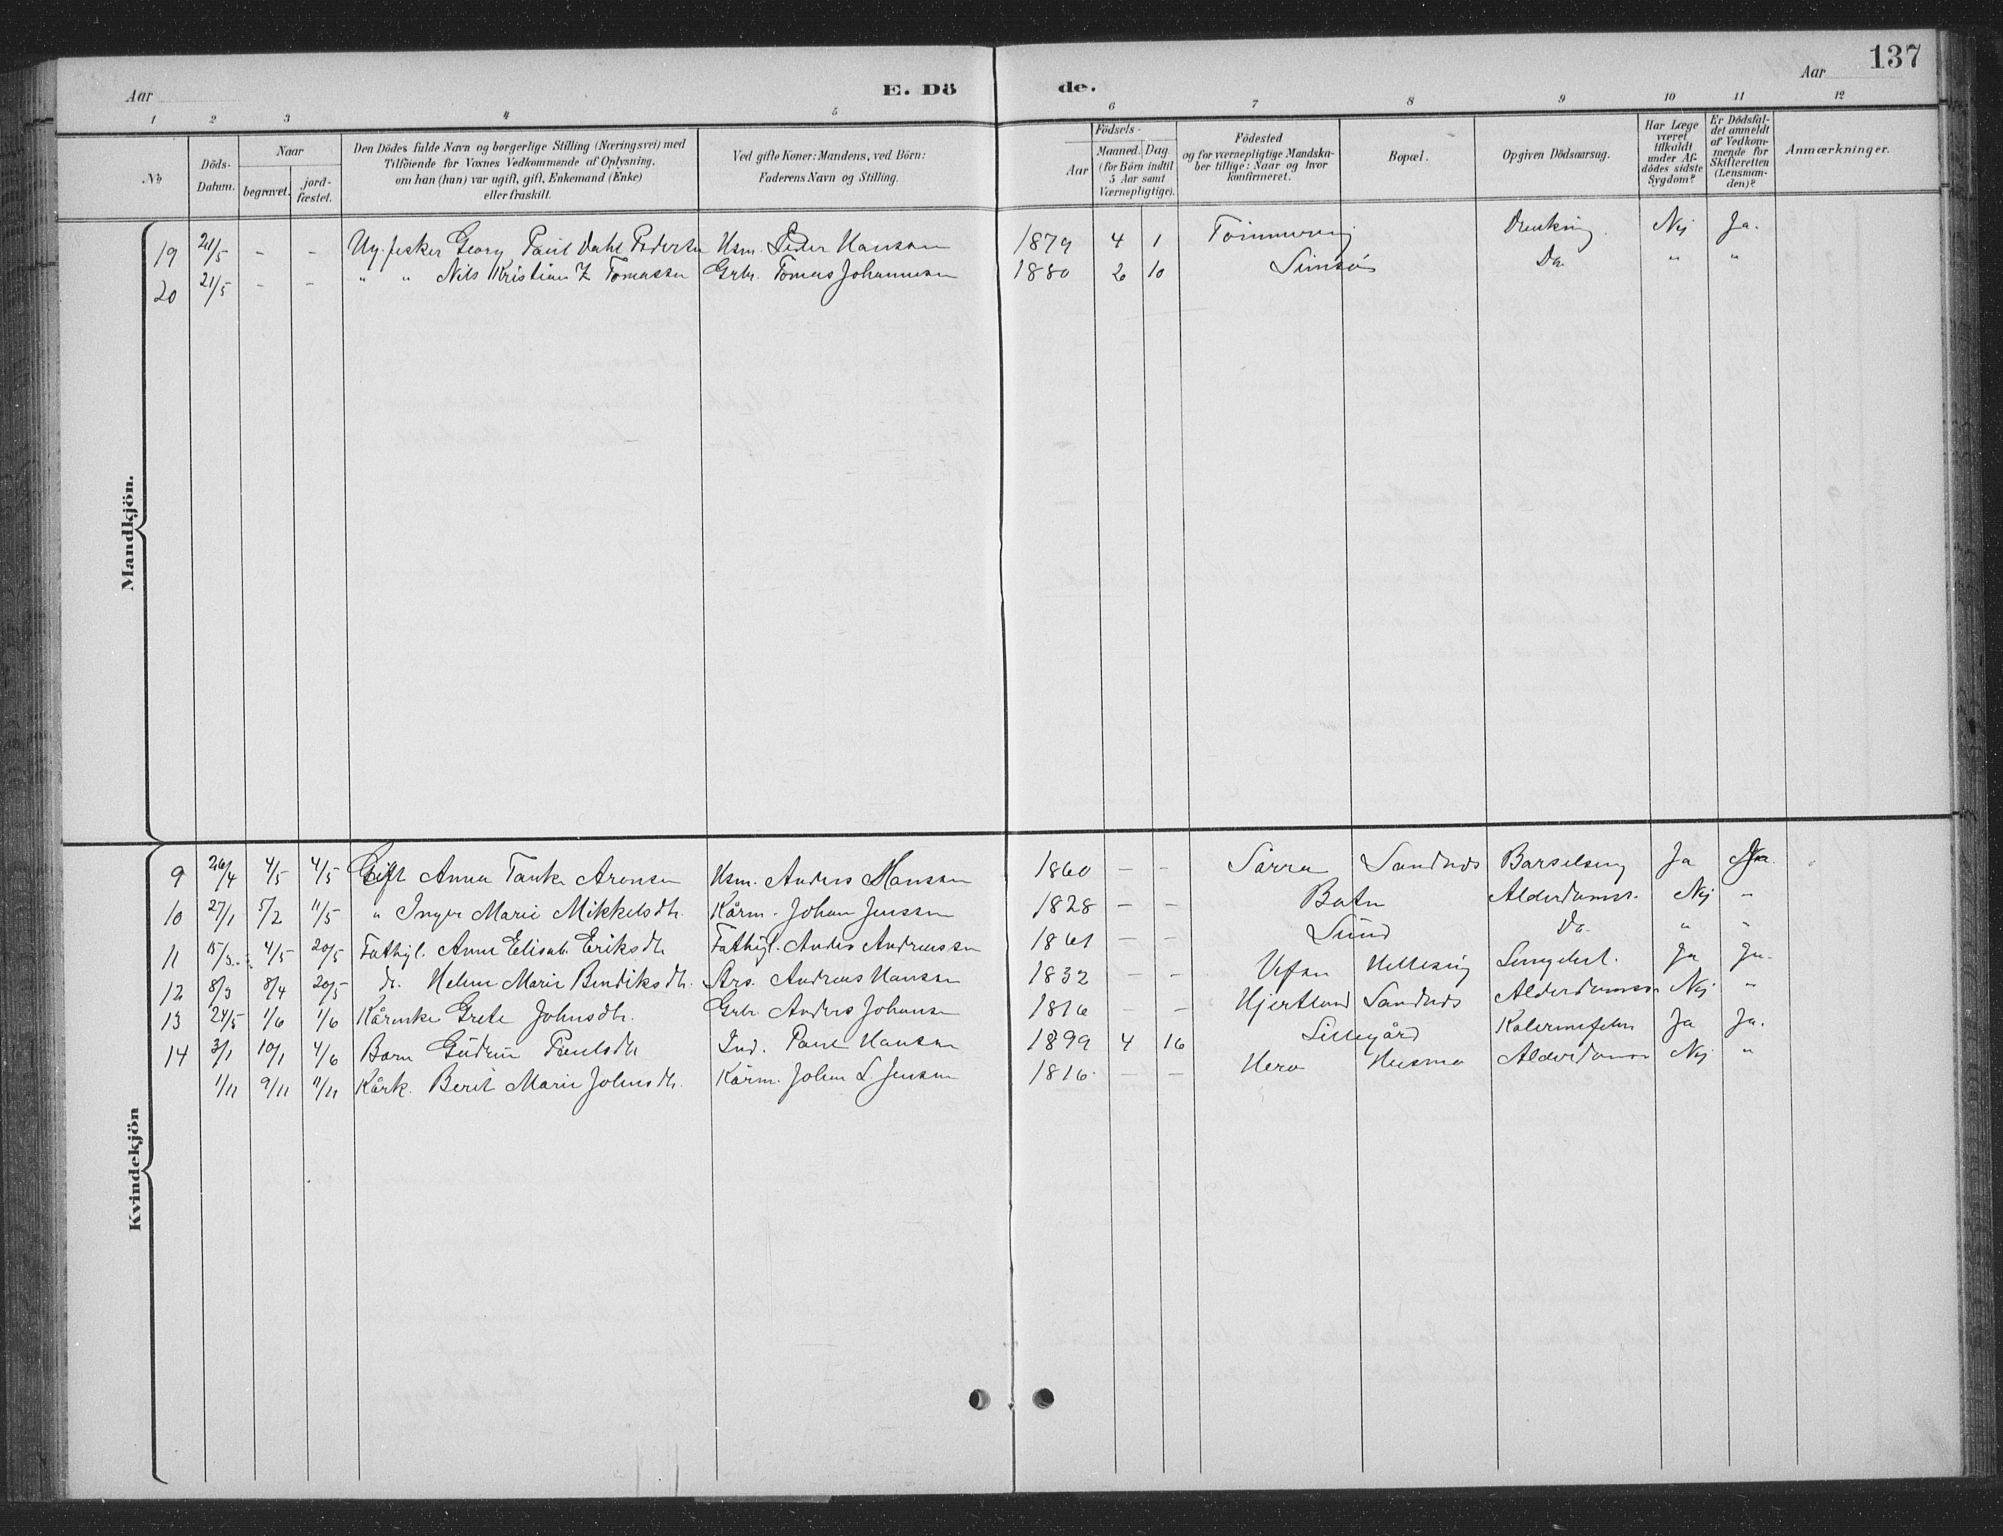 137
Aar E. Dö de. Aar
1 2 3 4 5 6 7 8 9 10 11 12
No
Döds-Datum.
Naar
begravet.
jord-fæstet.
Den Dödes fulde Navn og borgerlige Stilling (Næringsvei) med
Tilföiende for Voxnes Vedkommende af Oplysning,
om han (hun) var ugift, gift, Enkemand (Enke)
eller fraskilt.
Ved gifte Koner: Mandens, ved Börn:
Faderens Navn og Stilling.
Födsels-
Aar
Maaned. Dag
(for Börn indtil
5 Aar samt
Værnepligtige).
Födested
og for værnepligtige Mandska-
ber tillige: Naar og hvor
konfirmeret.
Bopæl.
Opgiven Dödsaarsag.
Har Læge
været
tilkaldt
under Af-
dödes sidste
Sygdom?
Er Dödsfal-
det anmeldt
af Vedkom-
mende for
Skifteretten
(Lensman-
den)?
Anmærkninger.
Mandkjön.
19 21/5 - - Ug. fisker Georg Paul Dahl Pedersen Hsm. Peder Hansen 1879 4 1 Drukning. Nej Ja.
20 21/5 - - " " Nils Kristian Z Tomassen Grbr. Tomas Johannesen 1880 2 10 Do " "
Kvindekjön
9 26/4 4/5 4/5 Gift Anna Tanke Aronsen Hsm. Anders Hansen 1860 - - Sørra Sandnes Barselseng Ja
10 27/1 5/2 11/5 " Inger Marie Mikkelsdtr. Kårm. Johan Jenssen 1828 - - Alderdomss. Nej "
11 4/5 20/5 Fathgl. Anne Elisab. Eriksdtr. Fathgl. Anders Andreassen 1861 - - Sund Do. " "
12 8/3 8/4 20/5 do. Helene Marie Bendiksdtr. Andreas Hansen 1832 - - Ja Ja.
13 24/5 1/6 1/6 Kårenke Grete Johnsdtr. Grbr. Anders Johansen 1816 - - Hjertland Sandnes Alderdomss. Nej "
14 3/1 10/1 4/6 Barn Gudrun Paulsdtr Ind. Paul Hansen 1899 4 16 Lillegård Ja Ja.
1/11 9/11 11/11 Kårk. Berit Marie Johnsdtr. Kårm. Johan L. Jensen 1816. - - Husmo Alderdomss Nej "